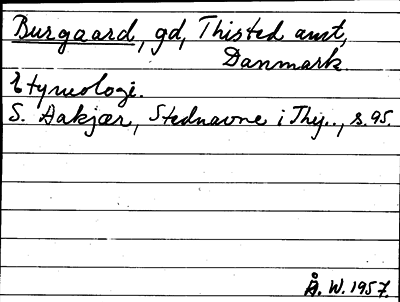 Burgaard, gd, Thisted amt,
Danmark.
Etymologi.
S. Aakjær, Stednavne i Thy.., s. 95.
Å. W. 1957.